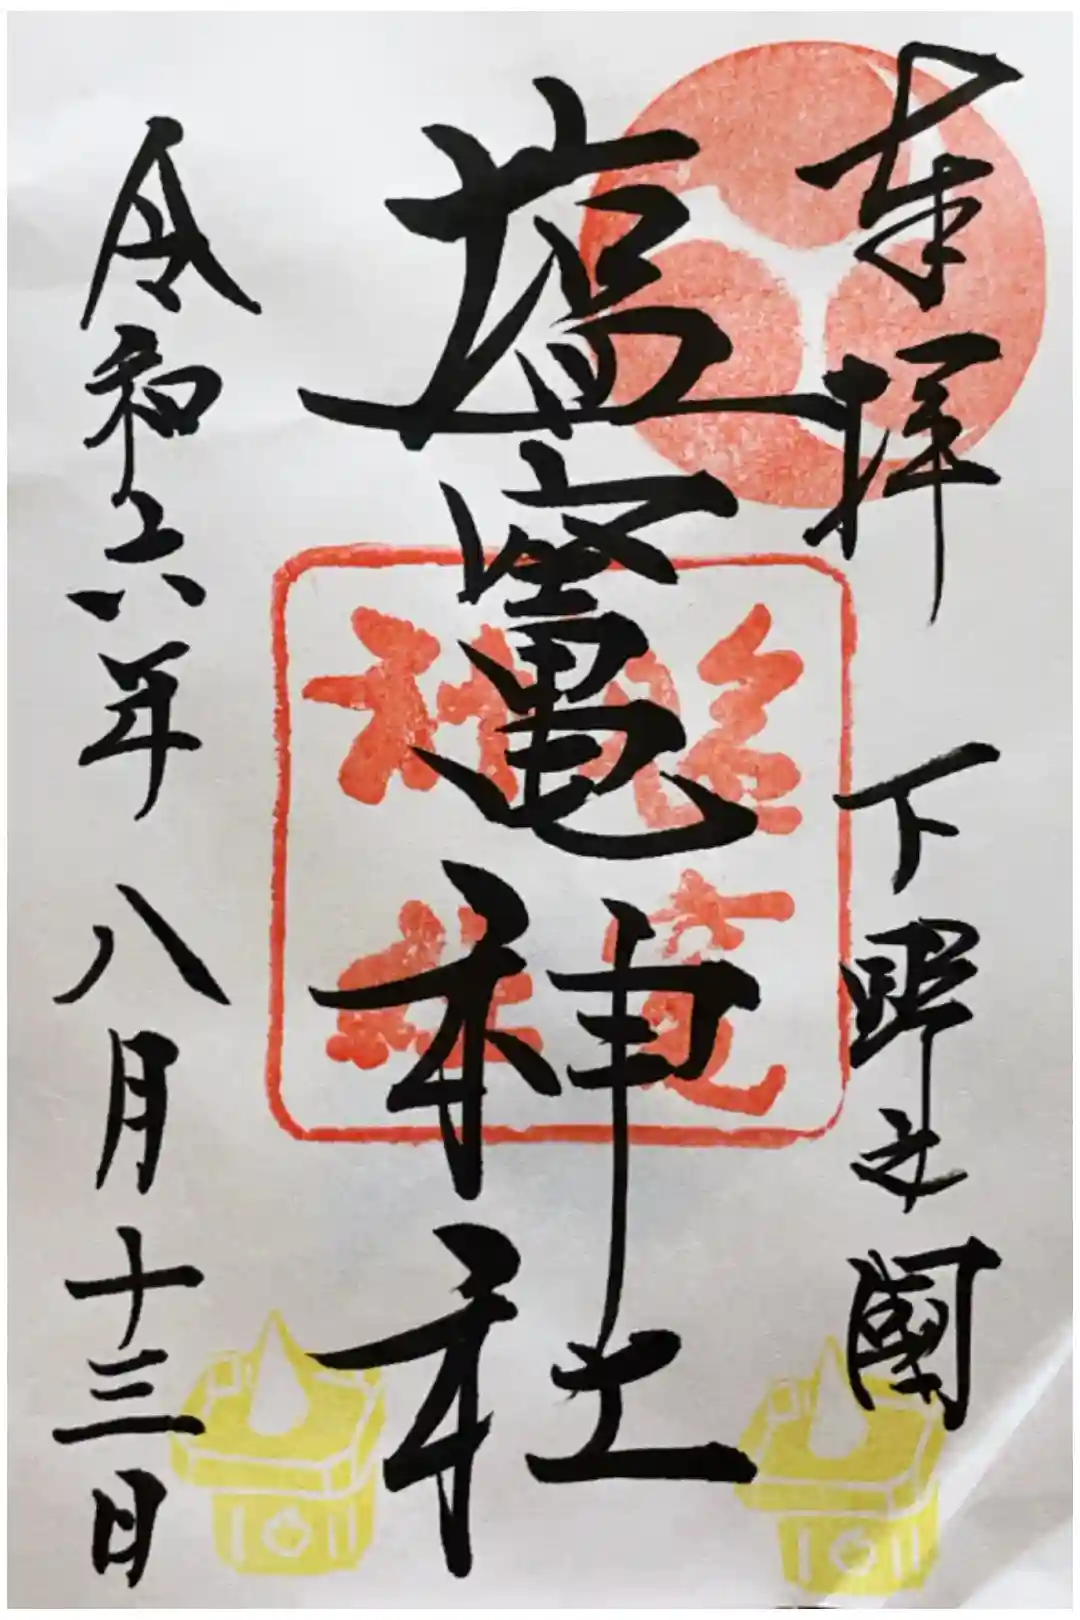 奉拝
下野之國
塩竈神社
塩竈神社
令和六年八月十三日